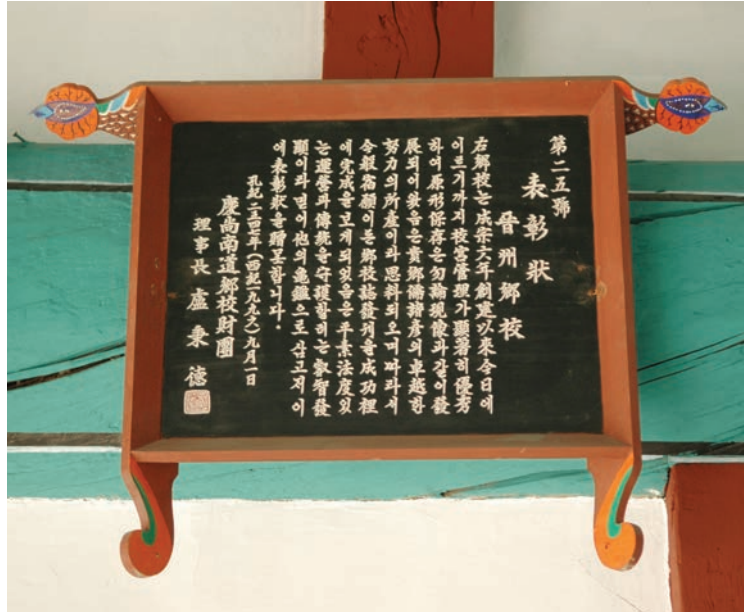 第二五號
表彰狀
晉州鄕校
右鄕校는成宗六年創建以來今日에
이르기까지校宮管理가顯著히優秀
하여原形保存은勿論現像과같이發
展되어왔음은貴鄕儒諸彦의卓越한
努力의所產이라思料되으며따라서
今般宿願이든鄕校誌發刊을成功裡
에完成을보게되었음은平素法度있
는運營과傳統을守護하려는叡智發
顯이라믿어他의龜鑑으로삼고저이
에表彰狀을贈呈합니다.
孔紀二五四七年(西紀一九九六)九月一日
慶尙南道鄕校財團
理事長 盧秉德